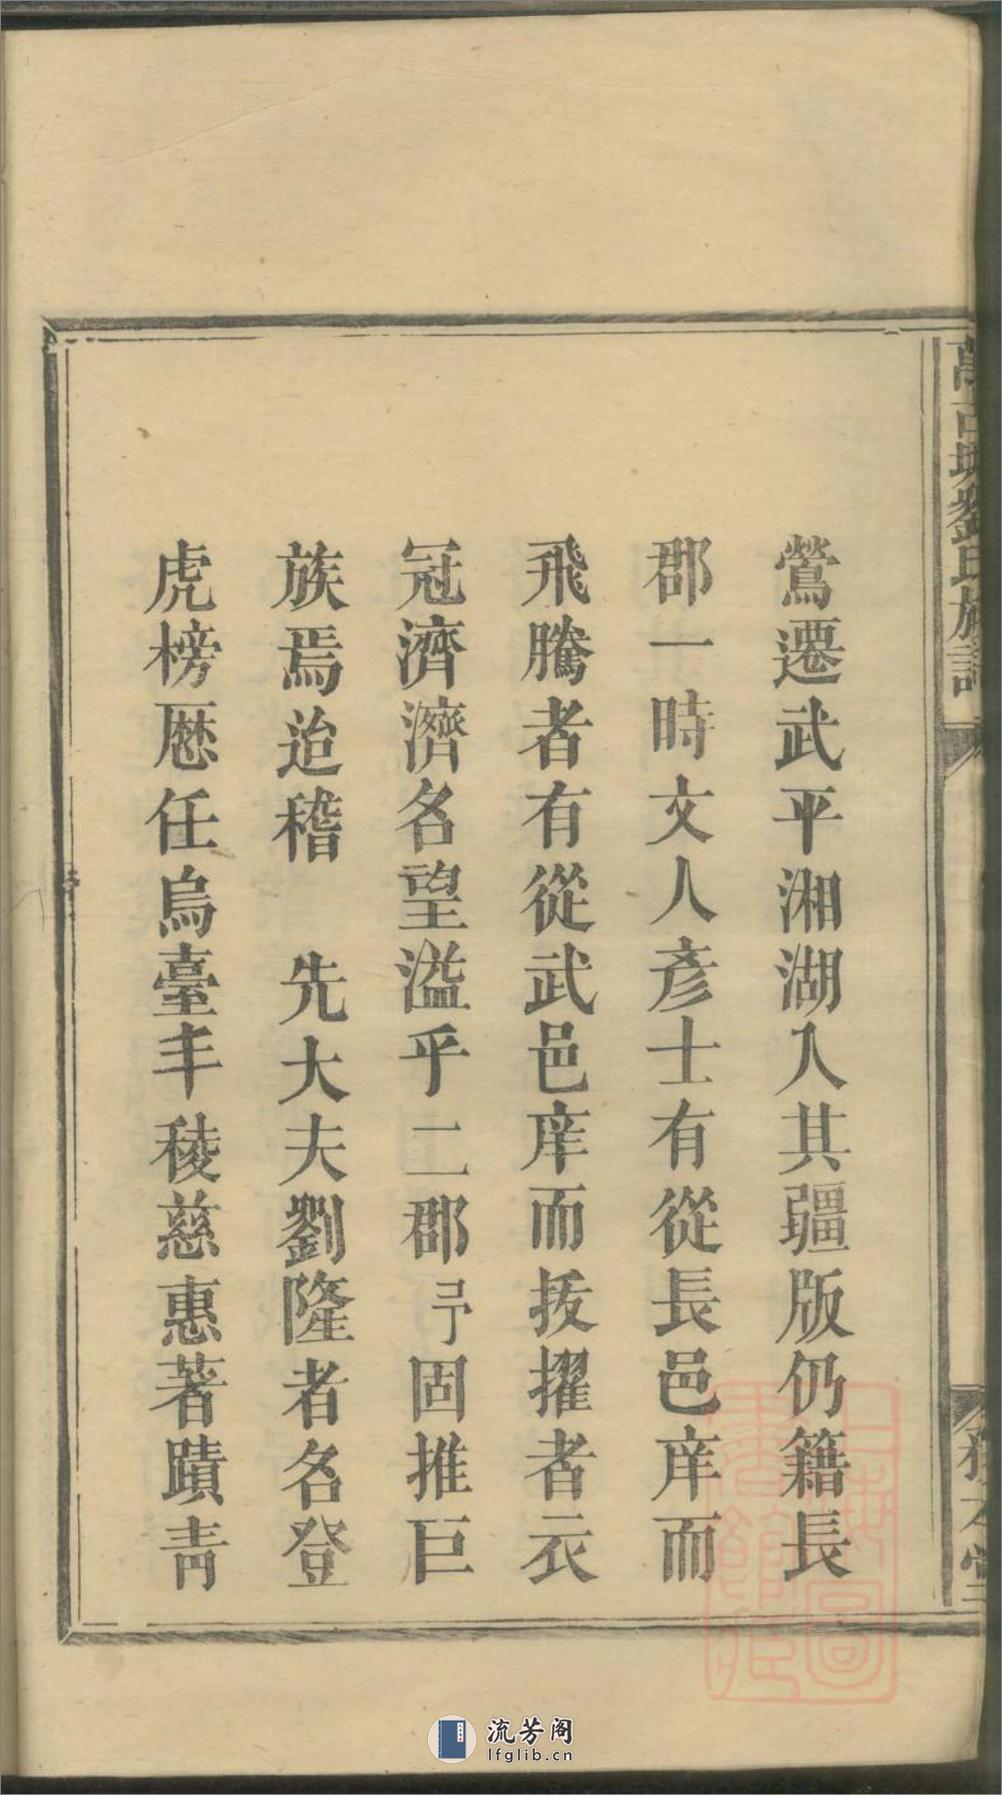 鶯遷武平湘湖入其疆版仍籍長
郡一時文人彥士有從長邑庠而
飛騰者有從武邑庠而拔擢者衣
冠濟濟名望溢乎二郡予固推巨
族焉迨稽　先大夫劉隆者名登
虎榜歷任烏臺丰稜慈惠著蹟靑
劉氏族譜
流芳阁
lfglib.cn